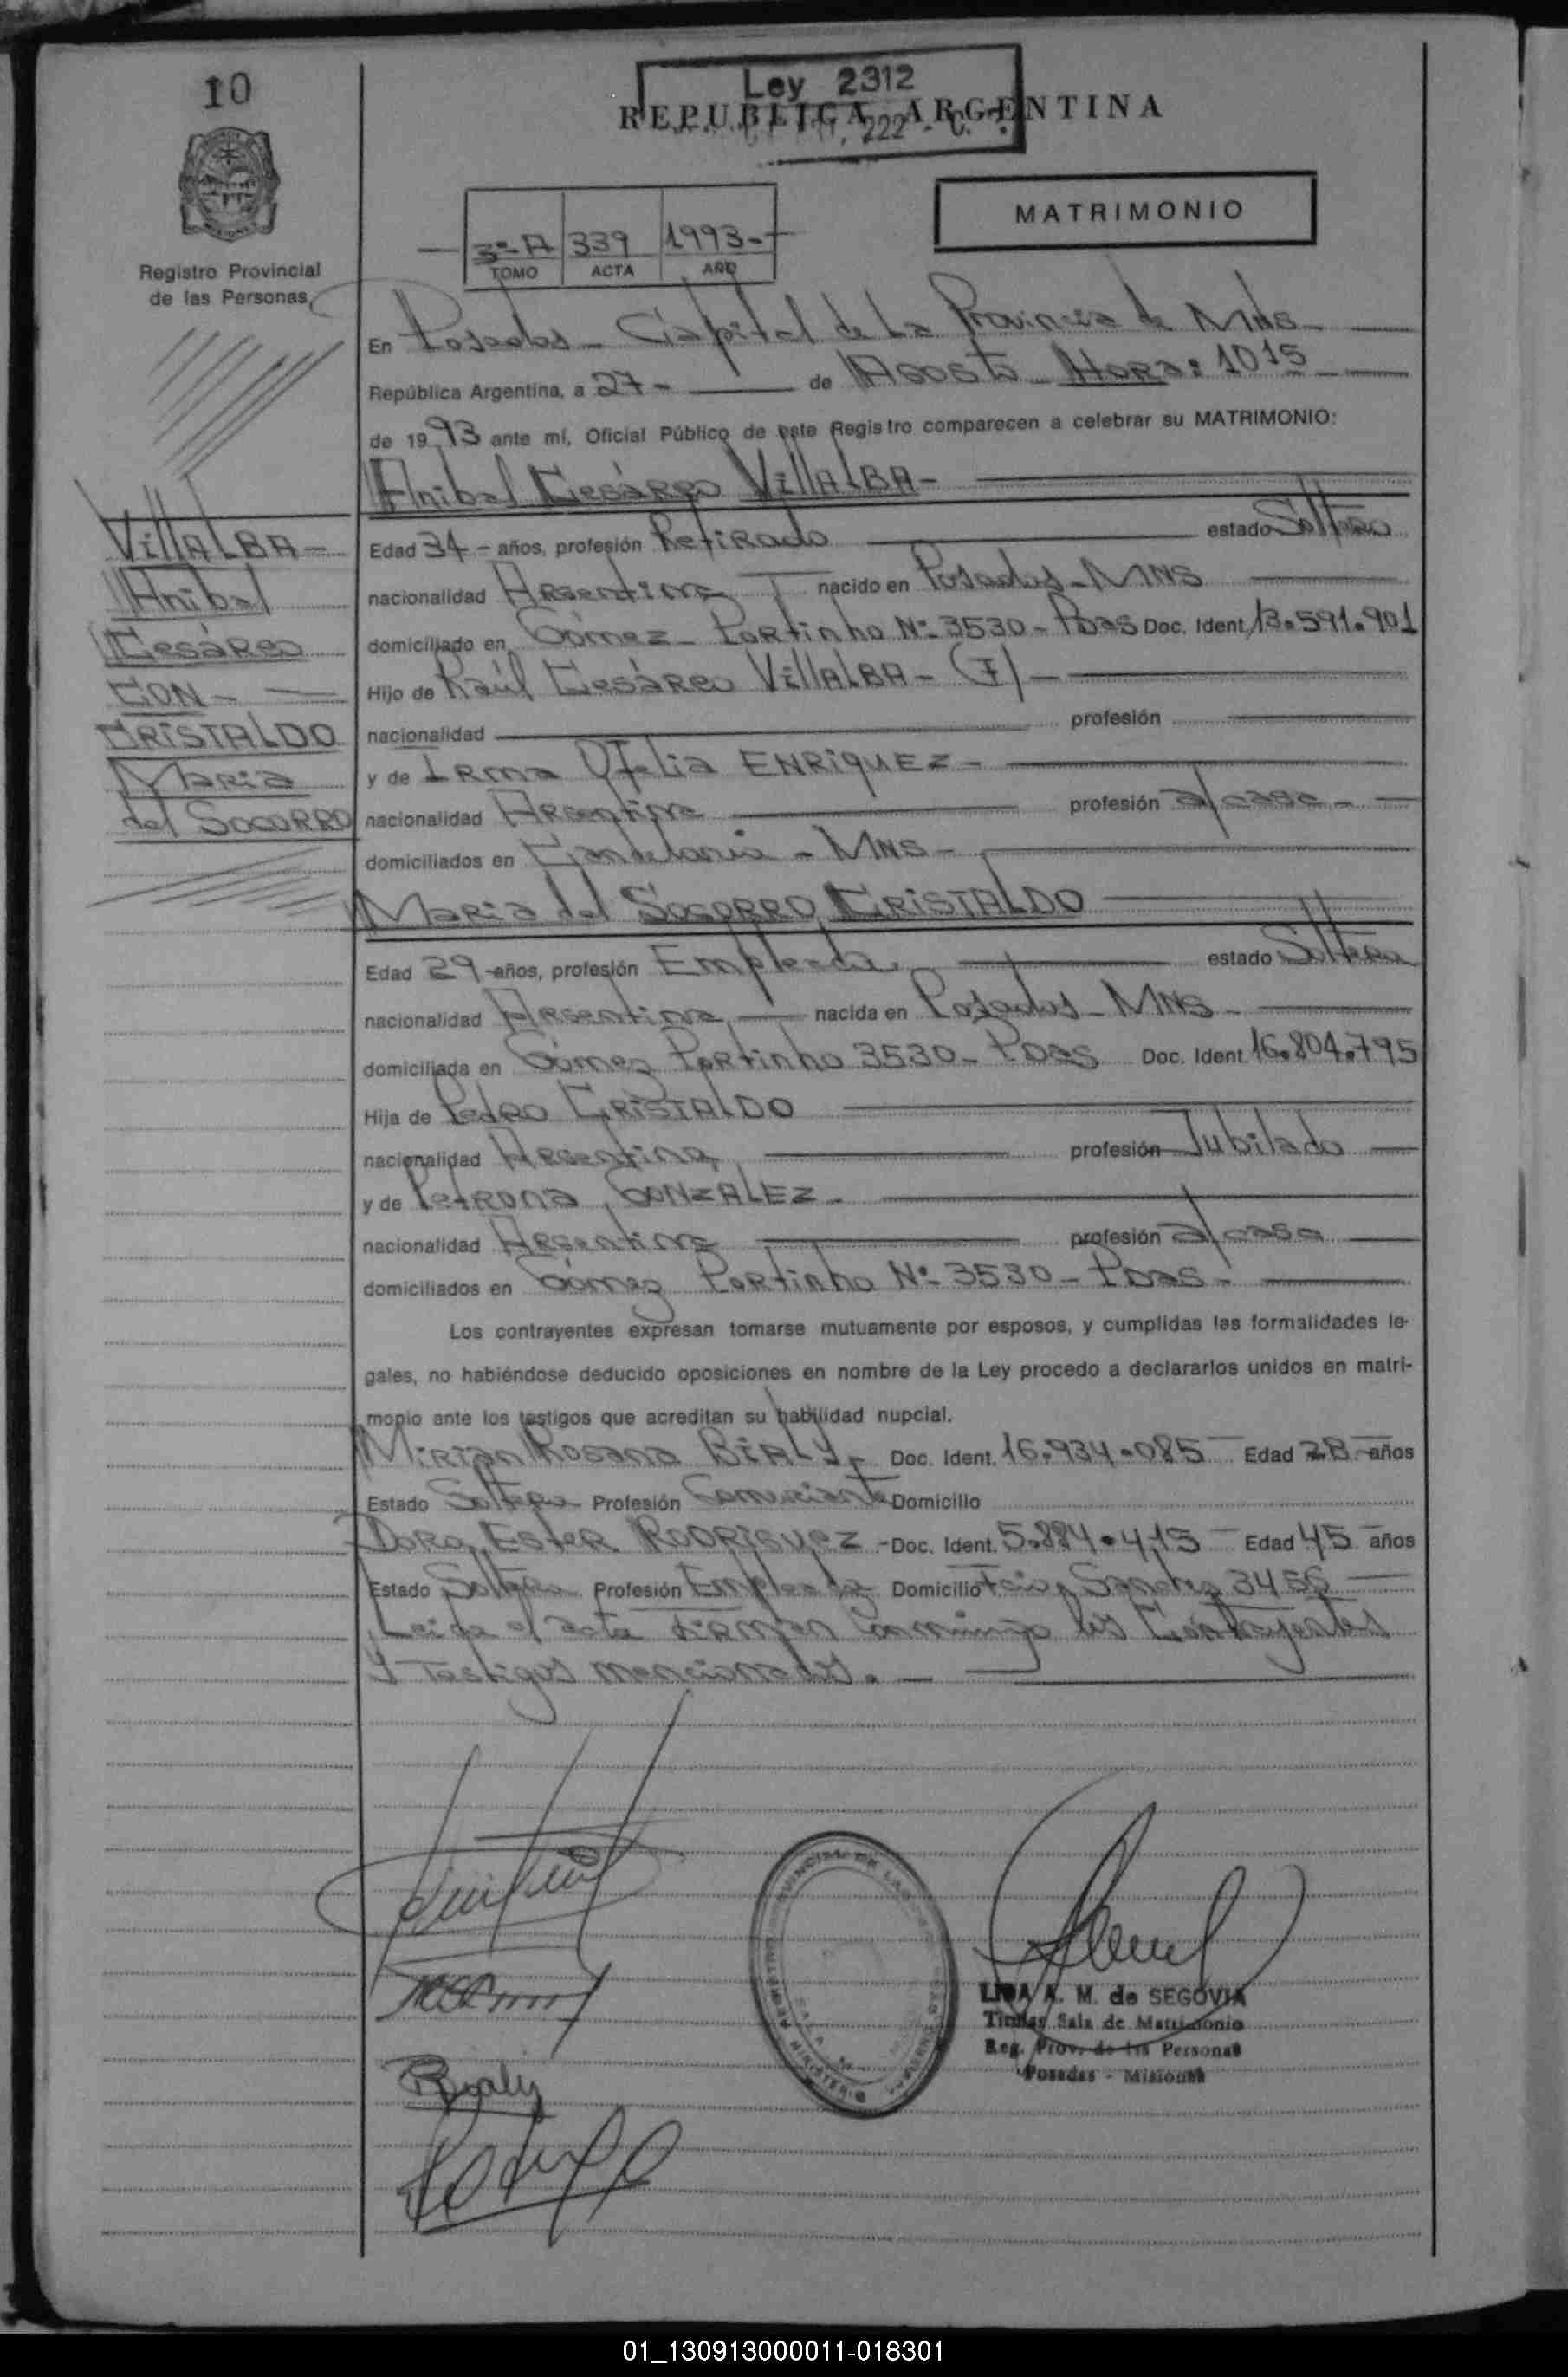 10
Ley 2312
REPUBLICA ARGENTINA
222 - C.
MATRIMONIO
3º-A 339 1993-
TOMO ACTA AÑO
Registro Provincial
de las Personas
En Posadas - Capital de La Provincia de Mnes
República Argentina, a 27 - de Agosto Hora: 1015
de 19 93 ante mí, Oficial Público de este Registro comparecen a celebrar su MATRIMONIO:
Anibal Cesáreo VillALBA-
VillALBA-
Anibal
Cesáreo
CON -
CRISTALDO
Maria
del SOCORRO
Edad 34 - años, profesión Retirado estado Soltero
nacionalidad Argentina nacido en Posadas - MNS
domiciliado en Gómez - Portinho Nº 3530 - Pdas Doc. Ident. 13.591.901
Hijo de Raúl Cesáreo VillALBA - (F) -
nacionalidad profesión
y de Irma Ofelia ENRIQUEZ -
nacionalidad Argentina profesión a/casa -
domiciliados en Candelaria - MNS -
Maria del SOCORRO CRISTALDO
Edad 29 - años, profesión Empleada estado Soltera
nacionalidad Argentina nacida en Posadas - MNS -
domiciliada en Gómez Portinho 3530 - Pdas Doc. Ident. 16.804.795
Hija de Pedro CRISTALDO
nacionalidad Argentina profesión Jubilado
y de Petrona GONZALEZ -
nacionalidad Argentina profesión a/casa
domiciliados en Gómez Portinho Nº 3530 - Pdas -
Los contrayentes expresan tomarse mutuamente por esposos, y cumplidas las formalidades le-
gales, no habiéndose deducido oposiciones en nombre de la Ley procedo a declararlos unidos en matri-
monio ante los testigos que acreditan su habilidad nupcial.
Mirian Rosana BIALY - Doc. Ident. 16.934.085 Edad 28 - años
Estado Soltera Profesión Comerciante Domicilio
Dora Ester RODRIGUEZ - Doc. Ident. 5.884.415 Edad 45 años
Estado Soltera Profesión Empleada Domicilio Sanchez 3456
Leida el acta firman conmigo los Contrayentes
y Testigos mencionados. -
Bialy
LIDA A. M. de SEGOVIA
Titular Sala de Matrimonio
Reg. Prov. de las Personas
Posadas - Misiones
01_130913000011-018301